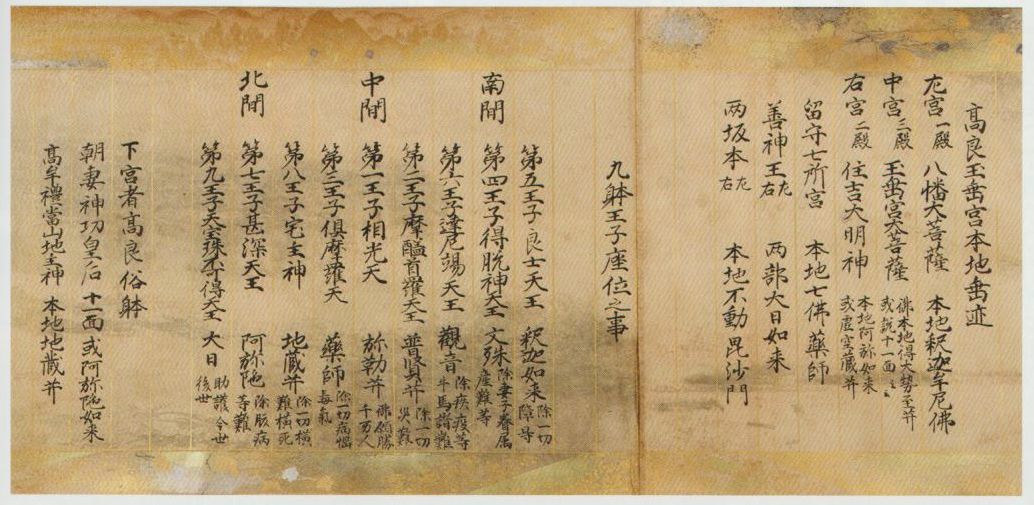 高良玉垂宮本地垂迹
左宮一殿 八幡大菩薩 本地釈迦牟尼佛
中宮三殿 玉垂宮大菩薩 佛本地得大勢至井
或説十一面
右宮二殿 住吉大明神 本地阿弥如来
或虚空蔵井
留守七所宮 本地七佛薬師
善神王左右 両部大日如来
两坂本左右 本地不動毘沙門
九躰王子座位之事
第五王子良士天王 釈迦如来 除一切障导
南間 第四王子得脱神天王 文殊 除妻子眷属産難等
第六王子逢尼竭天王 觀音 除疾疫等牛馬諸難
第二王子摩醯首羅天王 普賢井 除一切災難
中間 第一王子相光天 弥勒井 佛餉勝千万人
第三王子倶摩羅天 薬師 除一切病惱毒氣
第八王子宅主神 地蔵井 除一切横難横死
北間 第七王子甚深天王 阿弥陁 除脤病等難
第九王子天 大日 助護今世後世
下宮者高良俗躰
朝妻神功皇后 十一面或阿弥陁如来
高牟禮當山地主神 本地地蔵井